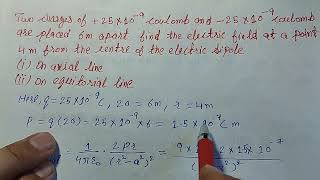 Two charges of +25×10⁻⁹ coulomb and -25×10⁻⁹ coulomb
are placed 6m apart find the electric field at a point
4m from the centre of the electric dipole
(i) On axial line
(ii) On equitorial line
Here, q=25×10⁻⁹C, 2a = 6m, r = 4m
P = q(2a) = 25×10⁻⁹×6 = 1.5×10⁻⁷ C m
1/4πε₀ · 2Pr/(r²-a²)² = 9 × 2×15×10⁻⁷